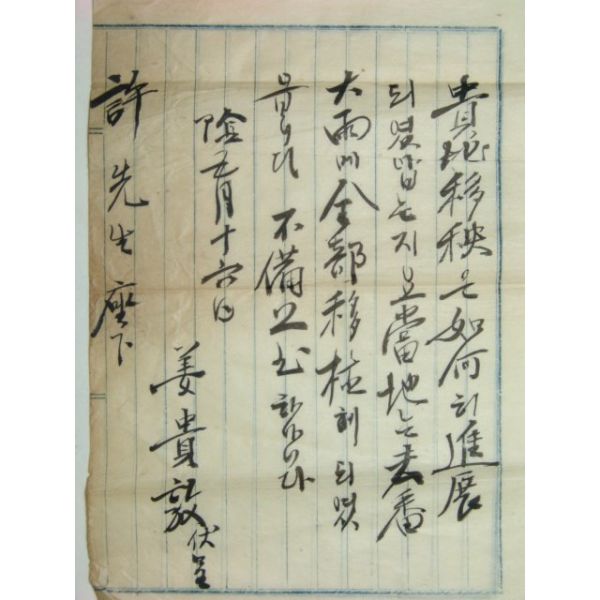 貴地移秧은如何히進展
되였삽는지요當地는去番
大雨에全部移植히되엿
不備上書하나이다
陰五月十六日
姜貴敦伏呈
許先生座下